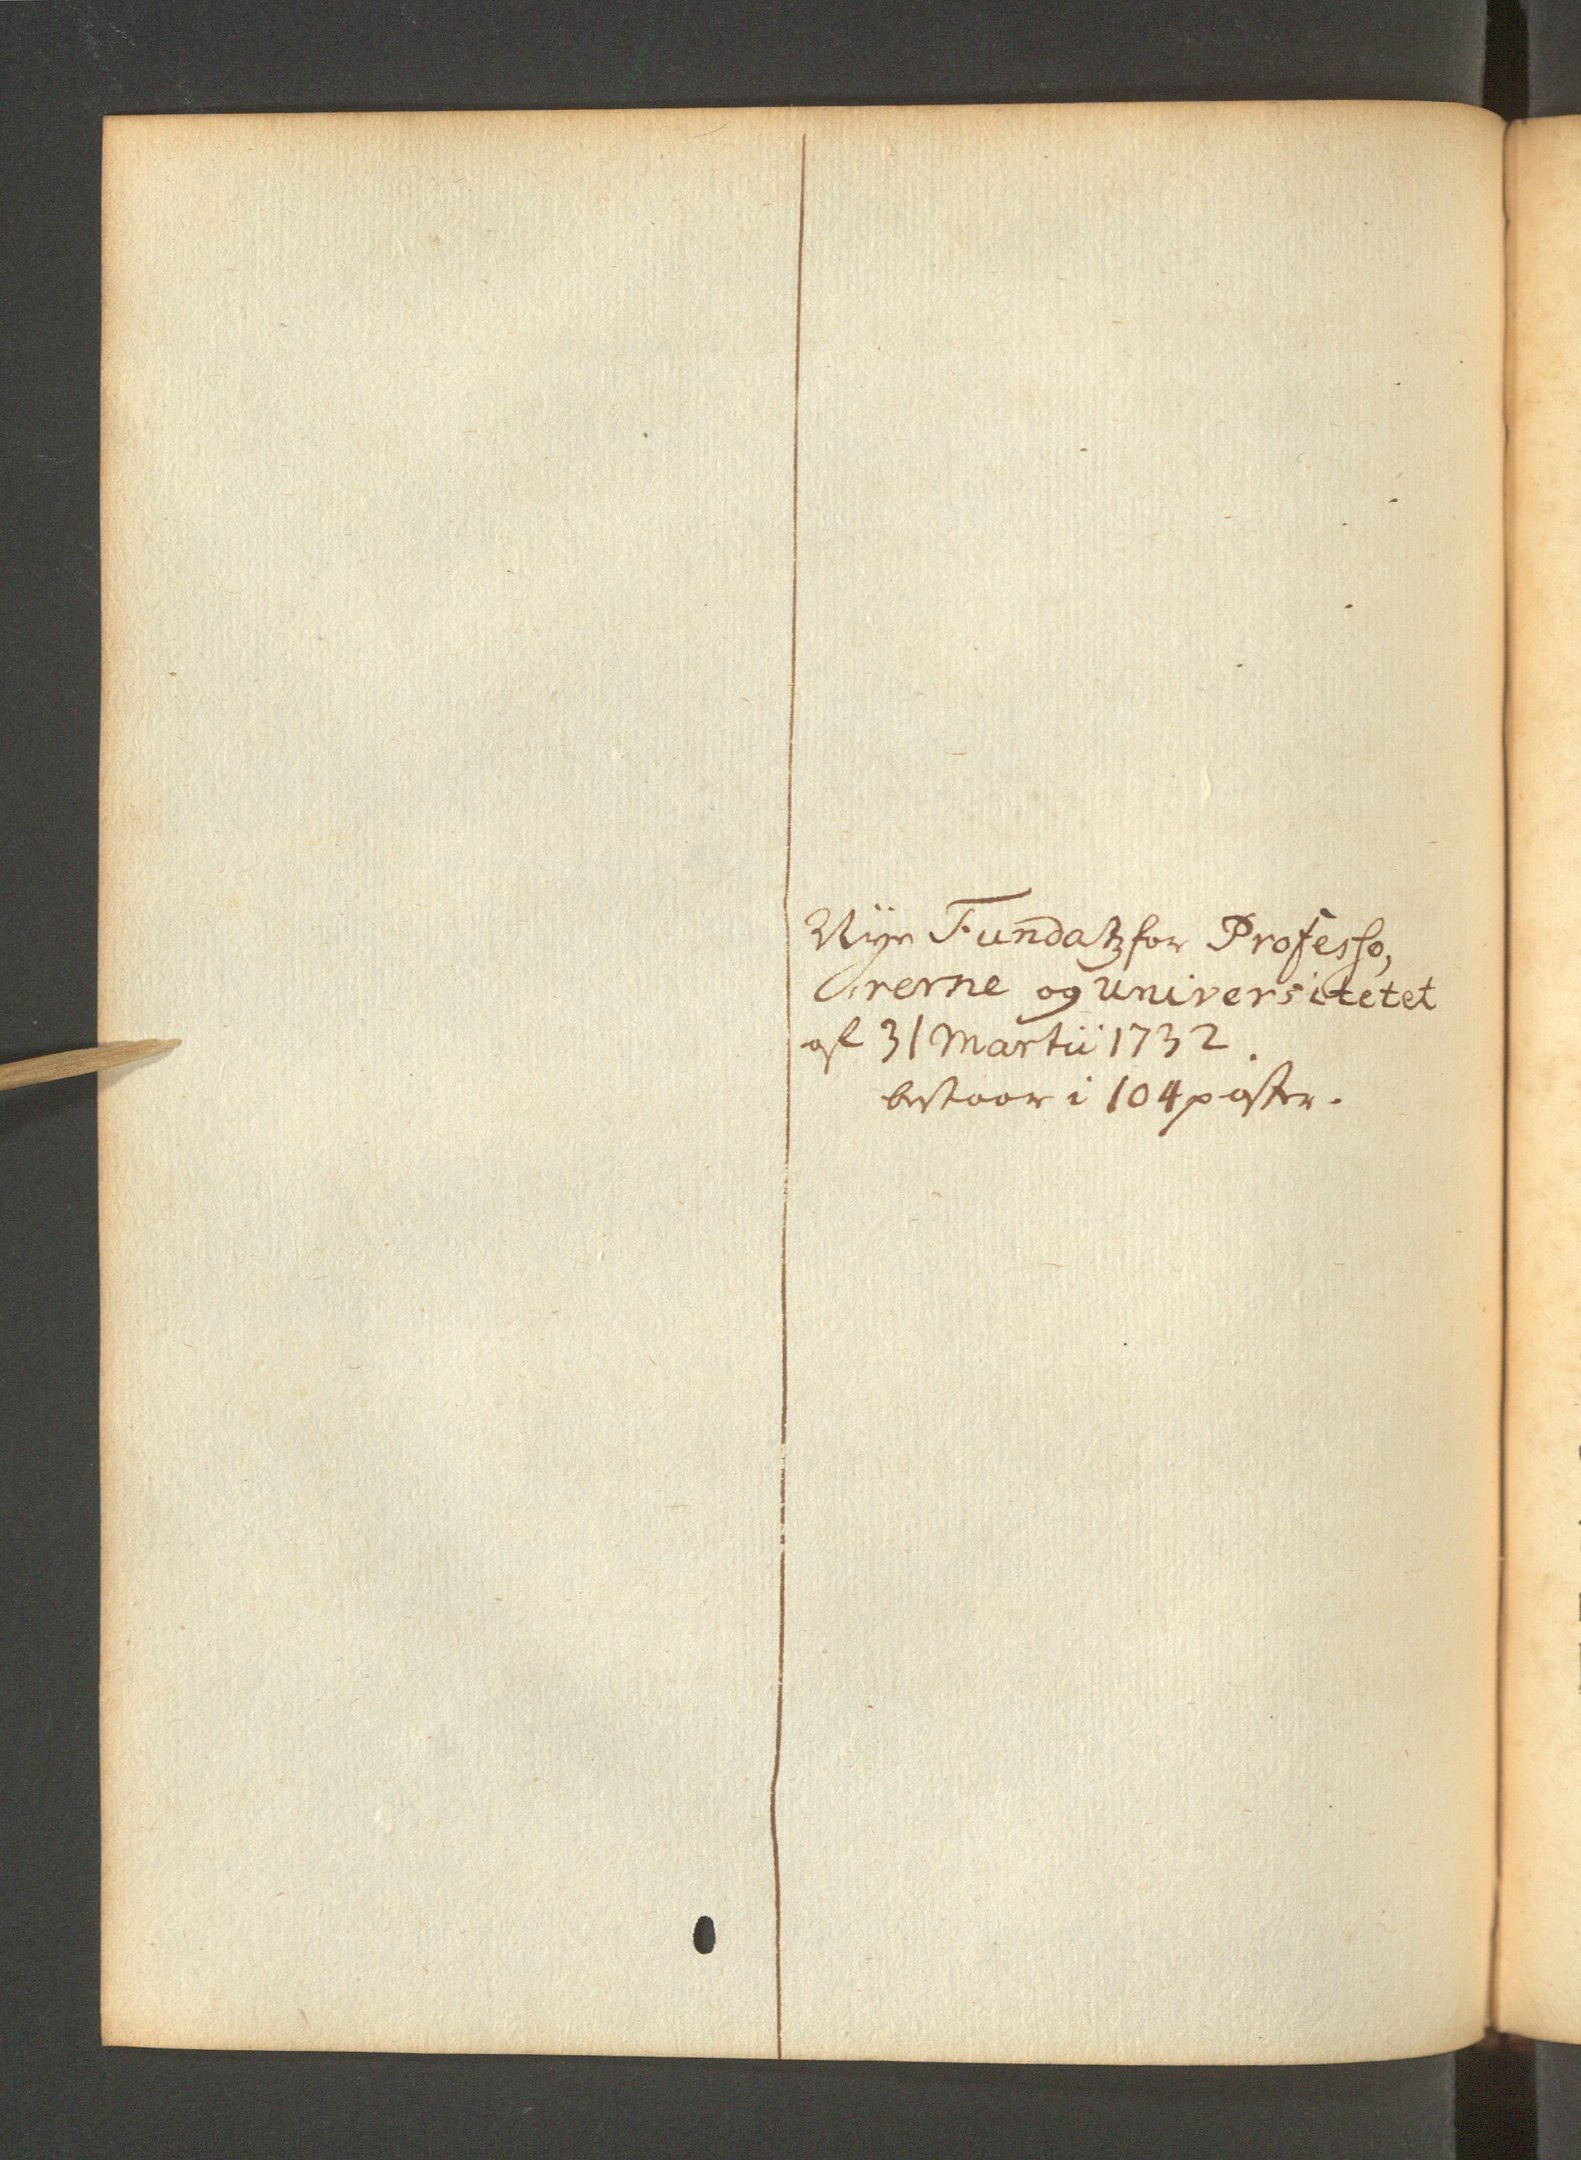 Nye Fundatz for Professo,
rerne og Universitetet
af 31 Martii 1732.
bestaar i 104 poster.